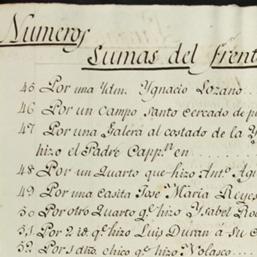 Numeros
Sumas del frent
45 Por una Ydm. Ygnacio Lozano
46 Por un Campo Santo Cercado de p
47 Por una Galera al costado de la Y
hizo el Padre Cappn en
48 Por un Quarto que hizo Anto. Agu
49 Por una Casita Jose Maria Reyes
50 Por otro Quarto qe. hizo Ysabel Ro
51 Por 2 id. qe. hizo Luis Duran á su C
52 Por 1 dho. chico qe. hizo Volasco